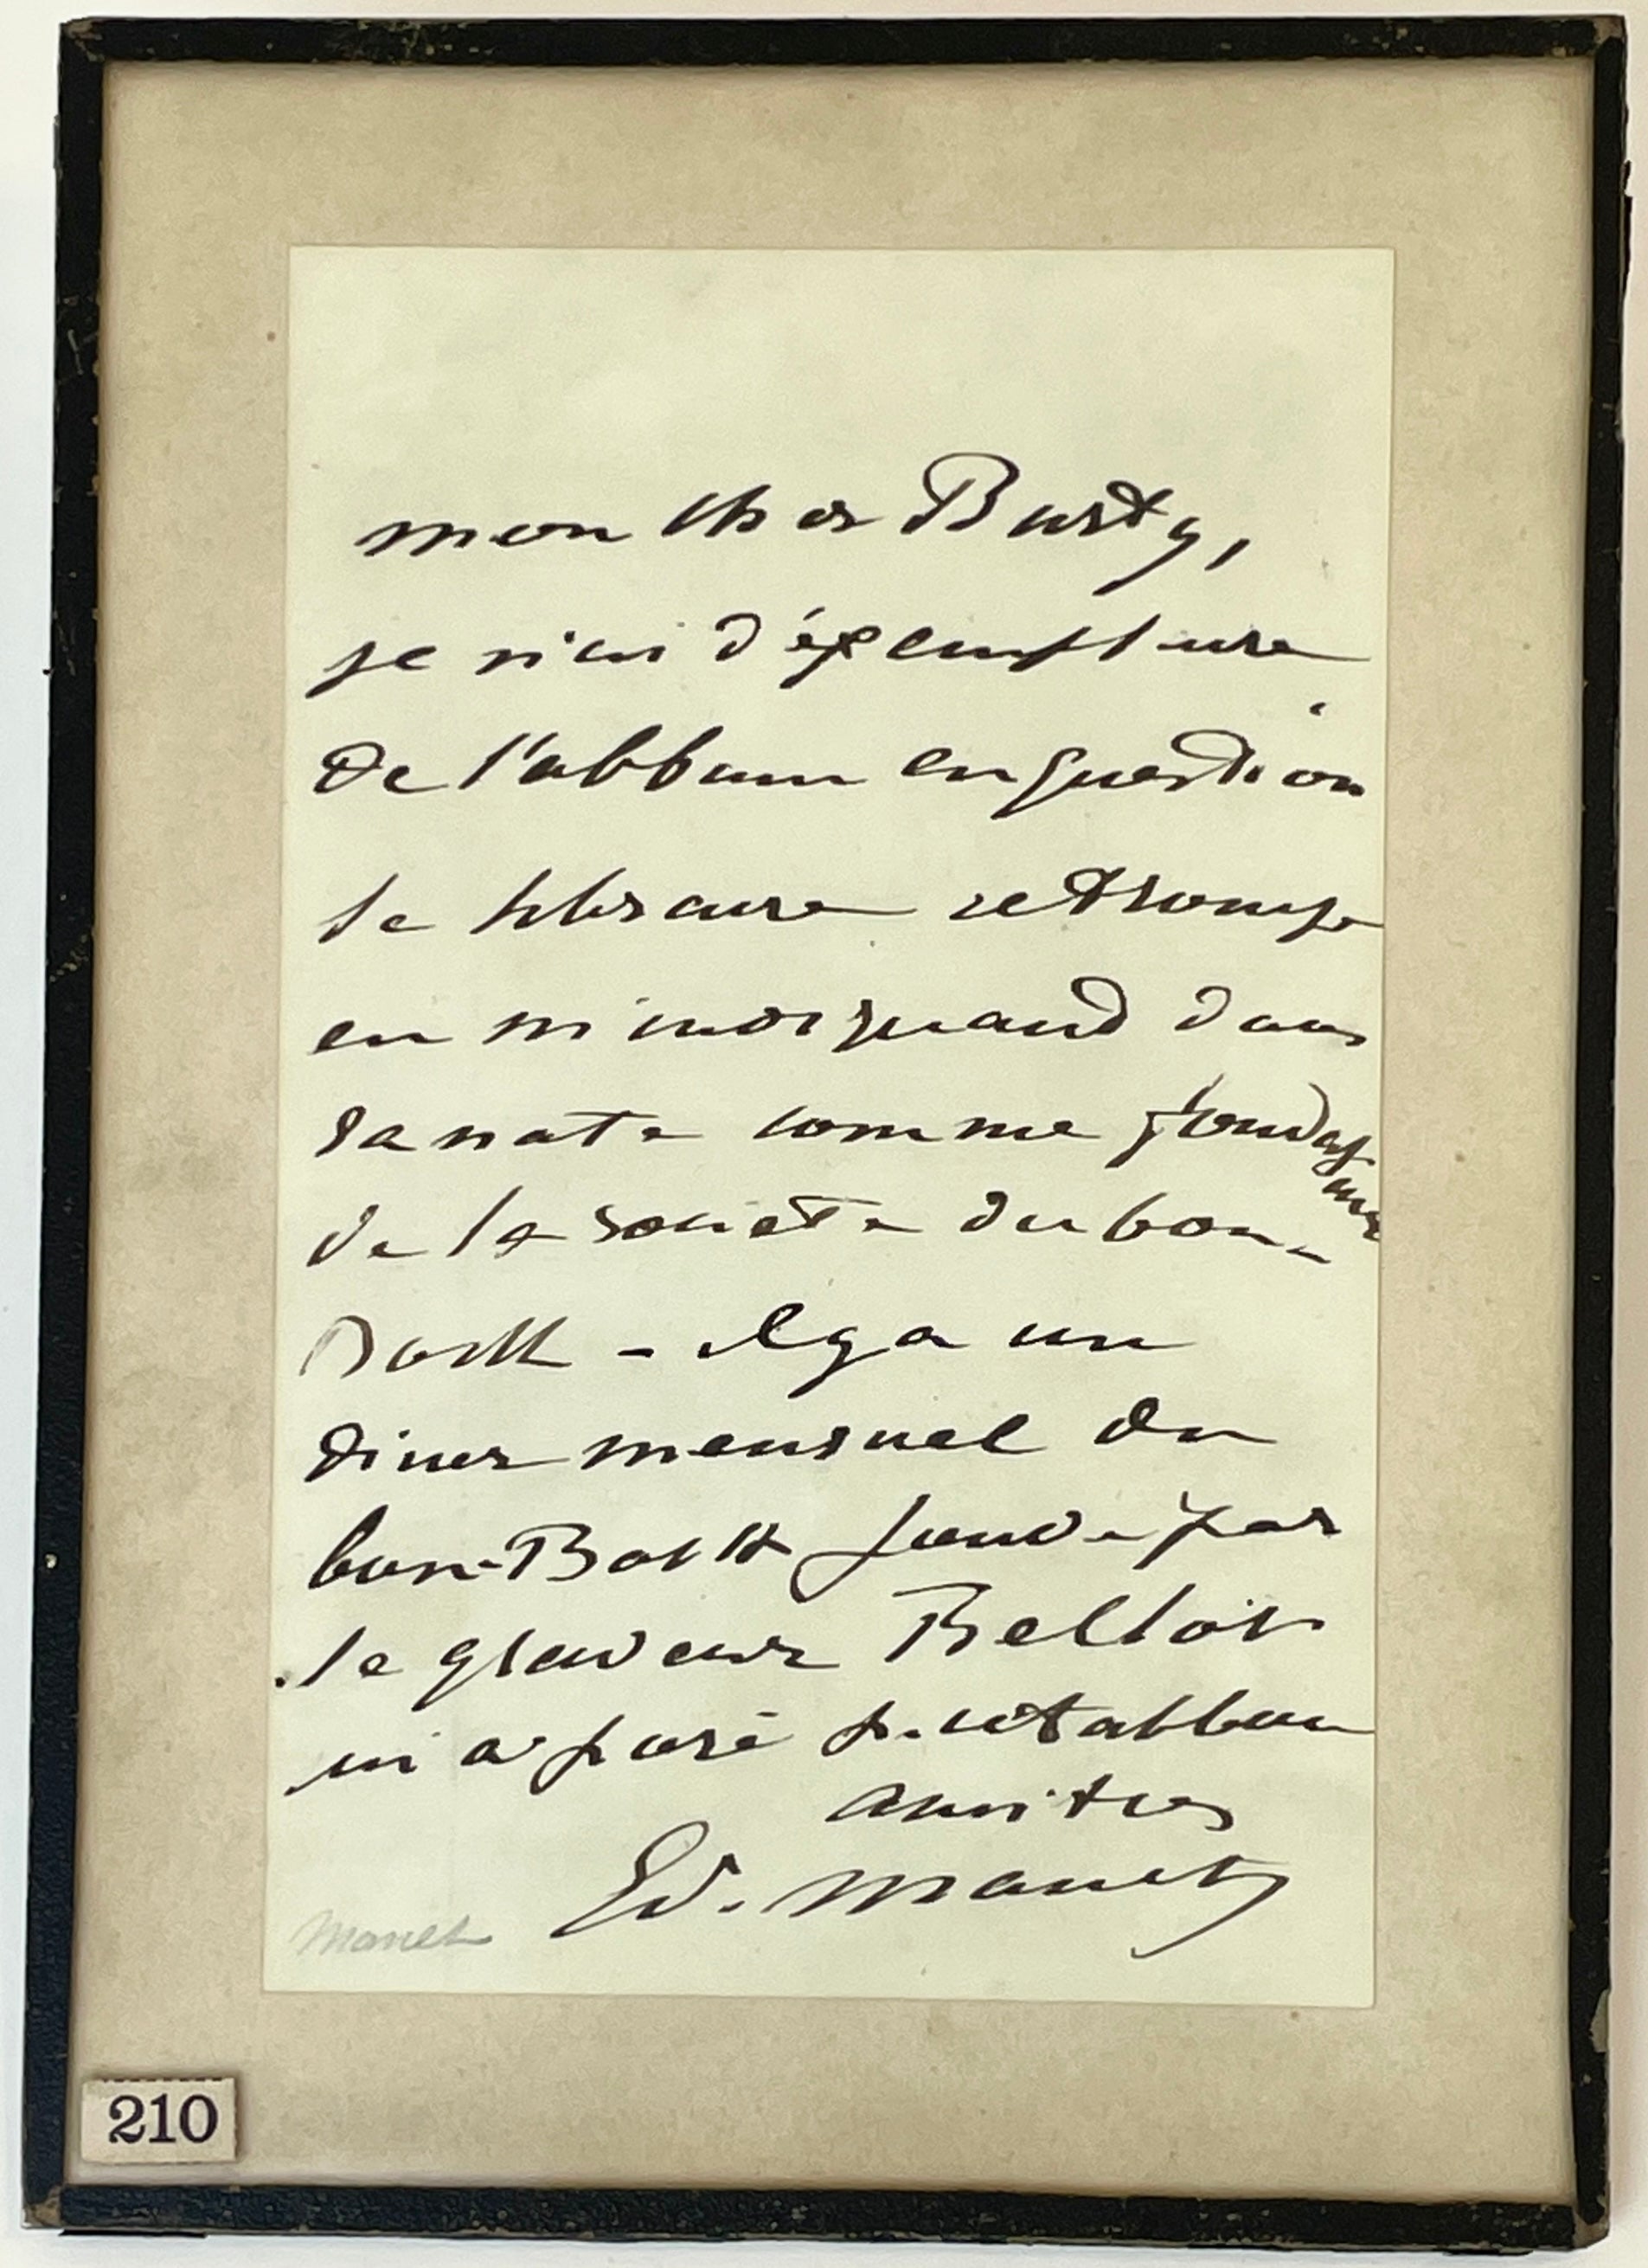 mon cher Burty,
je n'ai d'exemplaire
de l'album en question
le libraire se trompe
en m'indiquant dans
sa note comme fondateur
de la société du bon-
Bock - il y a un
diner mensuel du
bon-Bock fondé par
le graveur Bellot
m'a posé p. cet album
amitiés
Ed. Manet
Manet
210